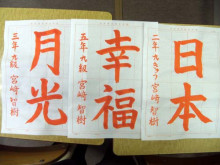 日本
二年 九 宮﨑智樹
幸福
五年 九級 宮﨑智樹
月光
三年 九級 宮﨑智樹